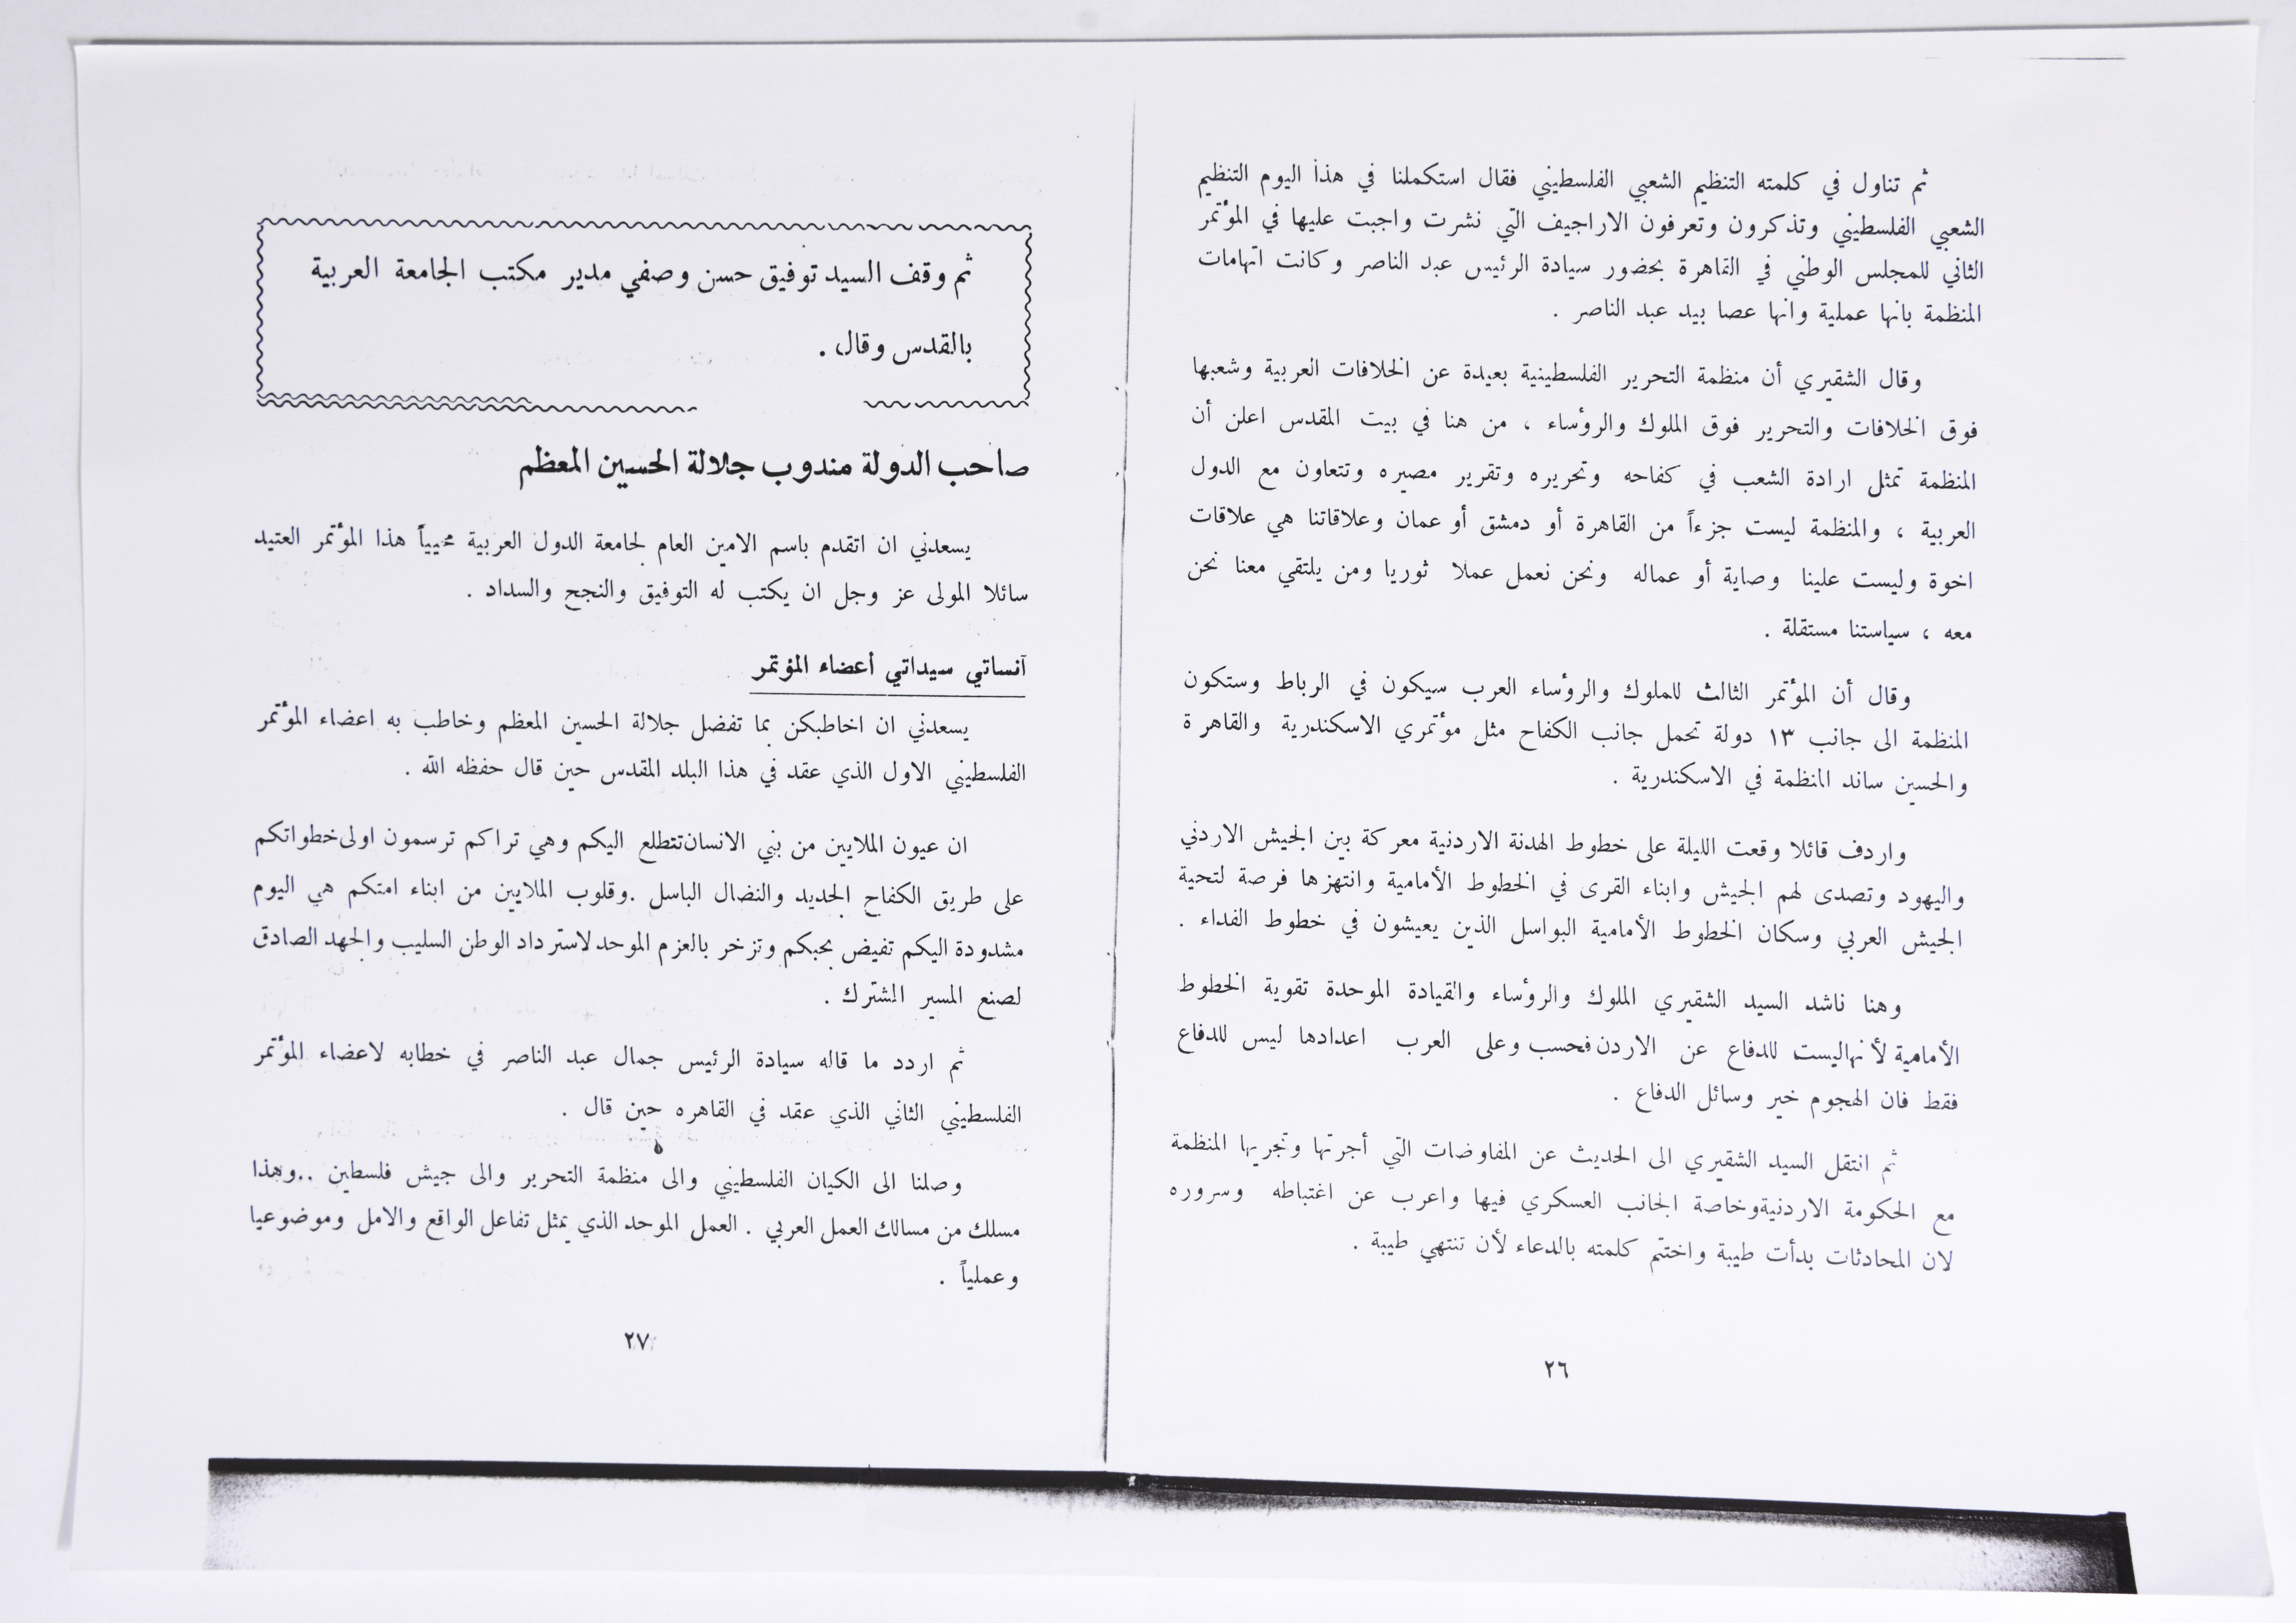 ثم تناول في كلمته التنظيم الشعبي الفلسطيني فقال استكملنا في هذا اليوم التنظيم
الشعبي الفلسطيني وتذكرون وتعرفون الاراجيف التي نشرت واجبت عليها في المؤتمر
الثاني للمجلس الوطني في القاهرة بحضور سيادة الرئيس عبد الناصر وكانت اتهامات
المنظمة بانها عملية وانها عصا بيد عبد الناصر .
وقال الشقيري أن منظمة التحرير الفلسطينية بعيدة عن الخلافات العربية وشعبها
فوق الخلافات والتحرير فوق الملوك والرؤساء ، من هنا في بيت المقدس اعلن أن
المنظمة تمثل ارادة الشعب في كفاحه وتحريره وتقرير مصيره وتتعاون مع الدول
العربية ، والمنظمة ليست جزءاً من القاهرة أو دمشق أو عمان وعلاقاتنا هي علاقات
اخوة وليست علينا وصاية أو عماله ونحن نعمل عملا ثوريا ومن يلتقي معنا نحن
معه ، سياستنا مستقلة .
وقال أن المؤتمر الثالث للملوك والرؤساء العرب سيكون في الرباط وستكون
المنظمة الى جانب ١٣ دولة تحمل جانب الكفاح مثل مؤتمري الاسكندرية والقاهرة
والحسين ساند المنظمة في الاسكندرية .
واردف قائلا وقعت الليلة على خطوط الهدنة الاردنية معركة بين الجيش الاردني
واليهود وتصدى لهم الجيش وابناء القرى في الخطوط الأمامية وانتهزها فرصة لتحية
الجيش العربي وسكان الخطوط الأمامية البواسل الذين يعيشون في خطوط الفداء .
وهنا ناشد السيد الشقيري الملوك والرؤساء والقيادة الموحدة تقوية الخطوط
الأمامية لأنهاليست للدفاع عن الاردن فحسب وعلى العرب اعدادها ليس للدفاع
فقط فان الهجوم خير وسائل الدفاع .
ثم انتقل السيد الشقيري الى الحديث عن المفاوضات التي أجرتها وتجريها المنظمة
مع الحكومة الاردنيةوخاصة الجانب العسكري فيها واعرب عن اغتباطه وسروره
لان المحادثات بدأت طيبة واختتم كلمته بالدعاء لأن تنتهي طيبة .
٢٦
ثم وقف السيد توفيق حسن وصفي مدير مكتب الجامعة العربية
بالقدس وقال .
صاحب الدولة مندوب جلالة الحسين المعظم
يسعدني ان اتقدم باسم الامين العام لجامعة الدول العربية محيياً هذا المؤتمر العتيد
سائلا المولى عز وجل ان يكتب له التوفيق والنجح والسداد .
آنساتي سيداتي أعضاء المؤتمر
يسعدني ان اخاطبكن بما تفضل جلالة الحسين المعظم وخاطب به اعضاء المؤتمر
الفلسطيني الاول الذي عقد في هذا البلد المقدس حين قال حفظه الله .
ان عيون الملايين من بني الانسان تتطلع اليكم وهي تراكم ترسمون اولى خطواتكم
على طريق الكفاح الجديد والنضال الباسل .وقلوب الملايين من ابناء امتكم هي اليوم
مشدودة اليكم تفيض بحبكم وتزخر بالعزم الموحد لاسترداد الوطن السليب والجهد الصادق
لصنع المسير المشترك .
ثم اردد ما قاله سيادة الرئيس جمال عبد الناصر في خطابه لاعضاء المؤتمر
الفلسطيني الثاني الذي عقد في القاهره حين قال .
وصلنا الى الكيان الفلسطيني والى منظمة التحرير والى جيش فلسطين ..وهذا
مسلك من مسالك العمل العربي . العمل الموحد الذي يمثل تفاعل الواقع والامل وموضوعيا
وعملياً .
٢٧